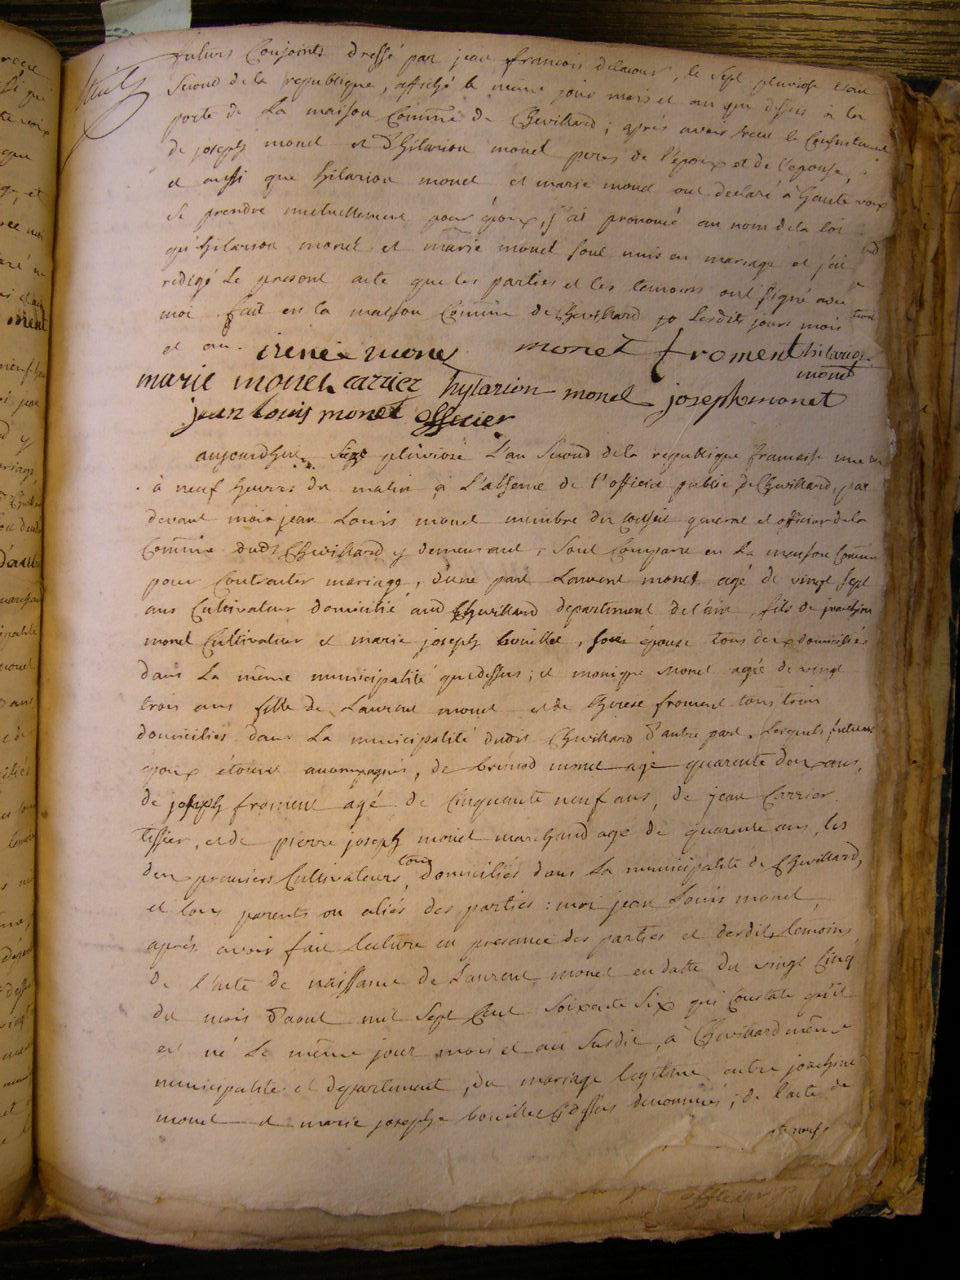 futurs Conjoints dressé par jean francois delacour, le sept pluviose l'an
second de la republique, affiché le meme jour mois et an que dessus a la
porte de La maison Commune de Chevillard; aprés avoir receu le Consentement
de joseph monet et d'hilarion monet peres de l'epoux et de l'epouse,
et aussi que hilarion monet et marie monet ont declaré à haute voix
se prendre mutuellement pour époux, j'ai prononcé au nom de la loi
qu'hilarion monet et marie monet sont unis en mariage et j'ai
redigé Le present acte que les parties et les temoins ont signé avec
moi fait en la maison Commune de Chevillard Lesdits jours mois
et an.
irenée monet monet froment hilarion
monet
marie monet carrier hylarion monet joseph monet
jean louis monet officier
aujourdhui pluviose L'an second de la republique francaise une
à neuf heures du matin à L'absence de l'officier public de Chevillard, par
devant moi jean Louis monet membre du conseil general et officier de la
Commune dudt Chevillard y demeurant, sont Comparu en La maison Commune
pour Contracter mariage, d'une part Laurent monet agé de vingt sept
ans Cultivateur domicilié audt Chevillard departement de l'ain, fils de joachim
monet Cultivateur et marie joseph bouillet, son épouse tous deux domiciliés
dans La même municipalité que dessus; et monique monet agée de vingt
trois ans fille de Laurent monet et de therese froment tous trois
domiciliés dans La municipalité dudit Chevillard d'autre part, Lesquels futurs
époux étoient accompagnés, de monet agé quarente deux ans,
de joseph froment agé de Cinquante neuf ans, de jean Carrier
tissier, et de pierre joseph monet marchand agé de quarente ans, les
deux premiers Cultivateurs, tous domiciliés dans La municipalité de Chevillard,
et tous parents ou aliés des parties: moi jean Louis monet,
aprés avoir fait lecture en presence des parties et desdits temoins,
de l'acte de naissance de Laurent monet en datte du vingt Cinq
du mois d'aout mil sept Cent soixante six qui Constate qu'il
est né Le même jour mois et an susdit, à Chevillard même
municipalité et departement, du mariage legitime entre joachim
monet et marie josephe bouillet dessus denommés; de l'acte de
officier